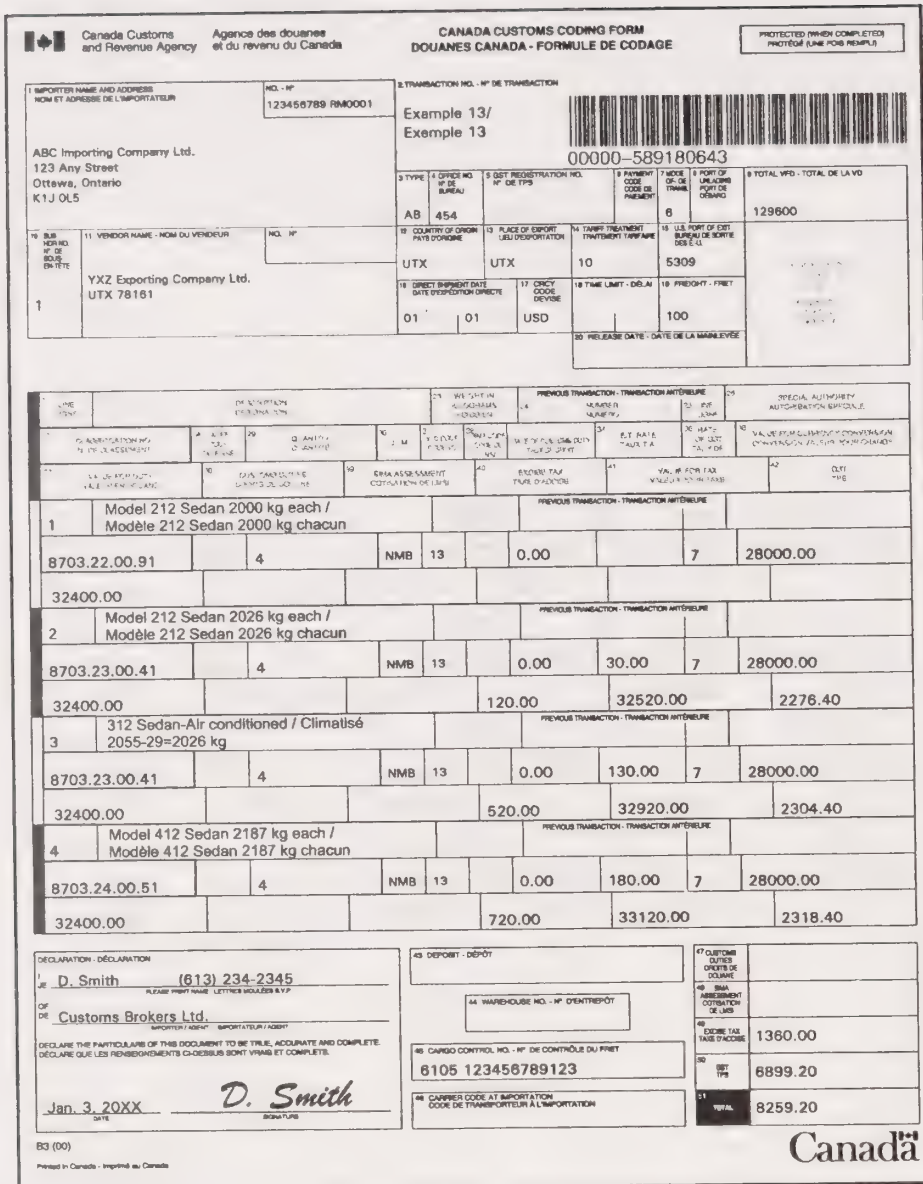 Canada Customs and Revenue Agency
Agence des douanes et du revenu du Canada
CANADA CUSTOMS CODING FORM
DOUANES CANADA - FORMULE DE CODAGE
PROTECTED (WHEN COMPLETED)
PROTÉGÉ (UNE FOIS REMPLI)
1 IMPORTER NAME AND ADDRESS
NOM ET ADRESSE DE L'IMPORTATEUR
NO. - Nº
123456789 RM0001
ABC Importing Company Ltd.
123 Any Street
Ottawa, Ontario
K1J 0L5
2 TRANSACTION NO. - Nº DE TRANSACTION
Example 13/
Example 13
00000-589180643
3 TYPE
AB
4 OFFICE NO.
Nº DE BUREAU
454
5 GST REGISTRATION NO.
Nº DE TPS
6 PAYMENT CODE
CODE DE PAIEMENT
7 MODE OF- DE TRANS.
6
8 PORT OF UNLADING
PORT DE DÉBARQ.
9 TOTAL VFD - TOTAL DE LA VD
129600
10 SUB HDR NO.
Nº DE SOUS EN-TÊTE
1
11 VENDOR NAME - NOM DU VENDEUR
NO. Nº
YXZ Exporting Company Ltd.
UTX 78161
12 COUNTRY OF ORIGIN
PAYS D'ORIGINE
UTX
13 PLACE OF EXPORT
LIEU D'EXPORTATION
UTX
14 TARIFF TREATMENT
TRAITEMENT TARIFAIRE
10
15 U.S. PORT OF EXIT
BUREAU DE SORTIE DES É.-U.
5309
16 DIRECT SHIPMENT DATE
DATE D'EXPÉDITION DIRECTE
01 01
17 CRCY CODE
DEVISE
USD
18 TIME LIMIT - DÉLAI
19 FREIGHT - FRET
100
20 RELEASE DATE - DATE DE LA MAINLEVÉE
PREVIOUS TRANSACTION - TRANSACTION ANTÉRIEURE
SPECIAL AUTHORITY
1 Model 212 Sedan 2000 kg each /
Modèle 212 Sedan 2000 kg chacun
PREVIOUS TRANSACTION - TRANSACTION ANTÉRIEURE
8703.22.00.91 4 NMB 13 0.00 7 28000.00
32400.00
2 Model 212 Sedan 2026 kg each /
Modèle 212 Sedan 2026 kg chacun
PREVIOUS TRANSACTION - TRANSACTION ANTÉRIEURE
8703.23.00.41 4 NMB 13 0.00 30.00 7 28000.00
32400.00 120.00 32520.00 2276.40
3 312 Sedan-Air conditioned / Climatisé
2055-29=2026 kg
PREVIOUS TRANSACTION - TRANSACTION ANTÉRIEURE
8703.23.00.41 4 NMB 13 0.00 130.00 7 28000.00
32400.00 520.00 32920.00 2304.40
4 Model 412 Sedan 2187 kg each /
Modèle 412 Sedan 2187 kg chacun
PREVIOUS TRANSACTION - TRANSACTION ANTÉRIEURE
8703.24.00.51 4 NMB 13 0.00 180.00 7 28000.00
32400.00 720.00 33120.00 2318.40
DECLARATION - DÉCLARATION
I
JE D. Smith (613) 234-2345
PLEASE PRINT NAME LETTRES MOULÉES S.V.P
OF
DE Customs Brokers Ltd.
IMPORTER / AGENT IMPORTATEUR / AGENT
DECLARE THE PARTICULARS OF THIS DOCUMENT TO BE TRUE, ACCURATE AND COMPLETE.
DÉCLARE QUE LES RENSEIGNEMENTS CI-DESSUS SONT VRAIS ET COMPLETS.
Jan. 3, 20XX D. Smith
DATE SIGNATURE
43 DEPOSIT - DÉPÔT
44 WAREHOUSE NO. - Nº D'ENTREPÔT
45 CARGO CONTROL NO. - Nº DE CONTRÔLE DU FRET
6105 123456789123
46 CARRIER CODE AT IMPORTATION
CODE DE TRANSPORTEUR À L'IMPORTATION
47 CUSTOMS DUTIES
DROITS DE DOUANE
48 SIMA ASSESSMENT
COTISATION DE LMSI
49 EXCISE TAX
TAXE D'ACCISE
1360.00
50 GST
TPS
6899.20
51 TOTAL
8259.20
B3 (00)
Printed in Canada - Imprimé au Canada
Canada